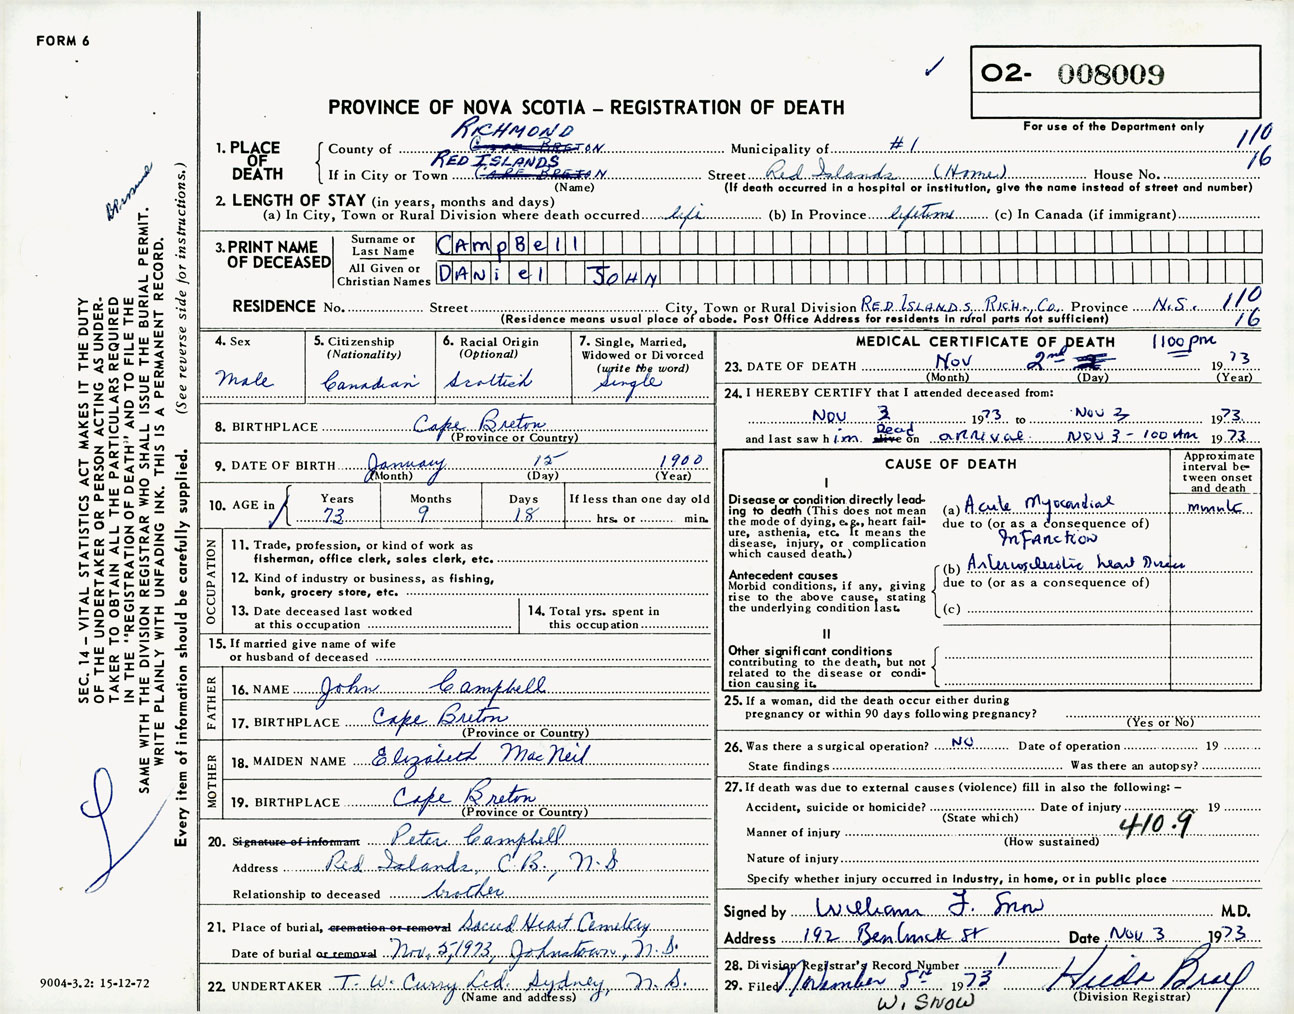 FORM 6
O2- 008009
PROVINCE OF NOVA SCOTIA – REGISTRATION OF DEATH
For use of the Department only
110
16
1. PLACE OF DEATH
RICHMOND
County of CAPE BRETON Municipality of #1
RED ISLANDS
If in City or Town CAPE BRETON Street Red Islands (Home) House No.
(Name) (If death occurred in a hospital or institution, give the name instead of street and number)
2. LENGTH OF STAY (in years, months and days)
(a) In City, Town or Rural Division where death occurred life (b) In Province lifetime (c) In Canada (if immigrant)
3. PRINT NAME OF DECEASED
Surname or Last Name CAmpBell
All Given or Christian Names DANiel JOHN
RESIDENCE No. Street City, Town or Rural Division RED ISLANDS RICH., CO. Province N.S. 110
(Residence means usual place of abode. Post Office Address for residents in rural parts not sufficient) 16
4. Sex
Male
5. Citizenship (Nationality)
Canadian
6. Racial Origin (Optional)
Scottish
7. Single, Married, Widowed or Divorced (write the word)
Single
8. BIRTHPLACE Cape Breton
(Province or Country)
9. DATE OF BIRTH January 15 1900
(Month) (Day) (Year)
10. AGE in Years Months Days If less than one day old
73 9 18 hrs. or min.
OCCUPATION
11. Trade, profession, or kind of work as
fisherman, office clerk, sales clerk, etc.
12. Kind of industry or business, as fishing,
bank, grocery store, etc.
13. Date deceased last worked
at this occupation
14. Total yrs. spent in
this occupation
15. If married give name of wife
or husband of deceased
FATHER
16. NAME John Campbell
17. BIRTHPLACE Cape Breton
(Province or Country)
MOTHER
18. MAIDEN NAME Elizabeth MacNeil
19. BIRTHPLACE Cape Breton
(Province or Country)
20. Signature of informant Peter Campbell
Address Red Islands, C.B., N.S
Relationship to deceased brother
21. Place of burial, cremation or removal Sacred Heart Cemetery
Date of burial or removal Nov. 5, 1973, Johnstown, N.S.
22. UNDERTAKER T. W. Curry Ltd. Sydney, N.S.
(Name and address)
MEDICAL CERTIFICATE OF DEATH 1100 pm
23. DATE OF DEATH Nov 2nd 1973
(Month) (Day) (Year)
24. I HEREBY CERTIFY that I attended deceased from:
Nov 3 1973 to Nov 3 1973
Dead
and last saw him alive on arrival Nov 3 - 100 AM 1973
CAUSE OF DEATH
Approximate interval between onset and death
I
Disease or condition directly lead-
ing to death (This does not mean
the mode of dying, e.g., heart fail-
ure, asthenia, etc. It means the
disease, injury, or complication
which caused death.)
(a) Acute Myocardial
due to (or as a consequence of)
Infarction
Antecedent causes
Morbid conditions, if any, giving
rise to the above cause, stating
the underlying condition last.
(b) Arteriosclerotic heart Disease
due to (or as a consequence of)
(c)
II
Other significant conditions
contributing to the death, but not
related to the disease or condi-
tion causing it.
25. If a woman, did the death occur either during
pregnancy or within 90 days following pregnancy?
(Yes or No)
26. Was there a surgical operation? NO Date of operation 19
State findings Was there an autopsy?
27. If death was due to external causes (violence) fill in also the following: –
Accident, suicide or homicide? Date of injury 19
(State which)
Manner of injury 410.9
(How sustained)
Nature of injury
Specify whether injury occurred in industry, in home, or in public place
Signed by William F. Snow M.D.
Address 192 Bentinck St Date Nov 3 1973
28. Division Registrar's Record Number 1
29. Filed November 5th 1973
(Division Registrar)
W. SNOW
SEC. 14 – VITAL STATISTICS ACT MAKES IT THE DUTY
OF THE UNDERTAKER OR PERSON ACTING AS UNDER-
TAKER TO OBTAIN ALL THE PARTICULARS REQUIRED
IN THE "REGISTRATION OF DEATH" AND TO FILE THE
SAME WITH THE DIVISION REGISTRAR WHO SHALL ISSUE THE BURIAL PERMIT.
WRITE PLAINLY WITH UNFADING INK. THIS IS A PERMANENT RECORD.
Every item of information should be carefully supplied. (See reverse side for instructions.)
9004-3.2: 15-12-72